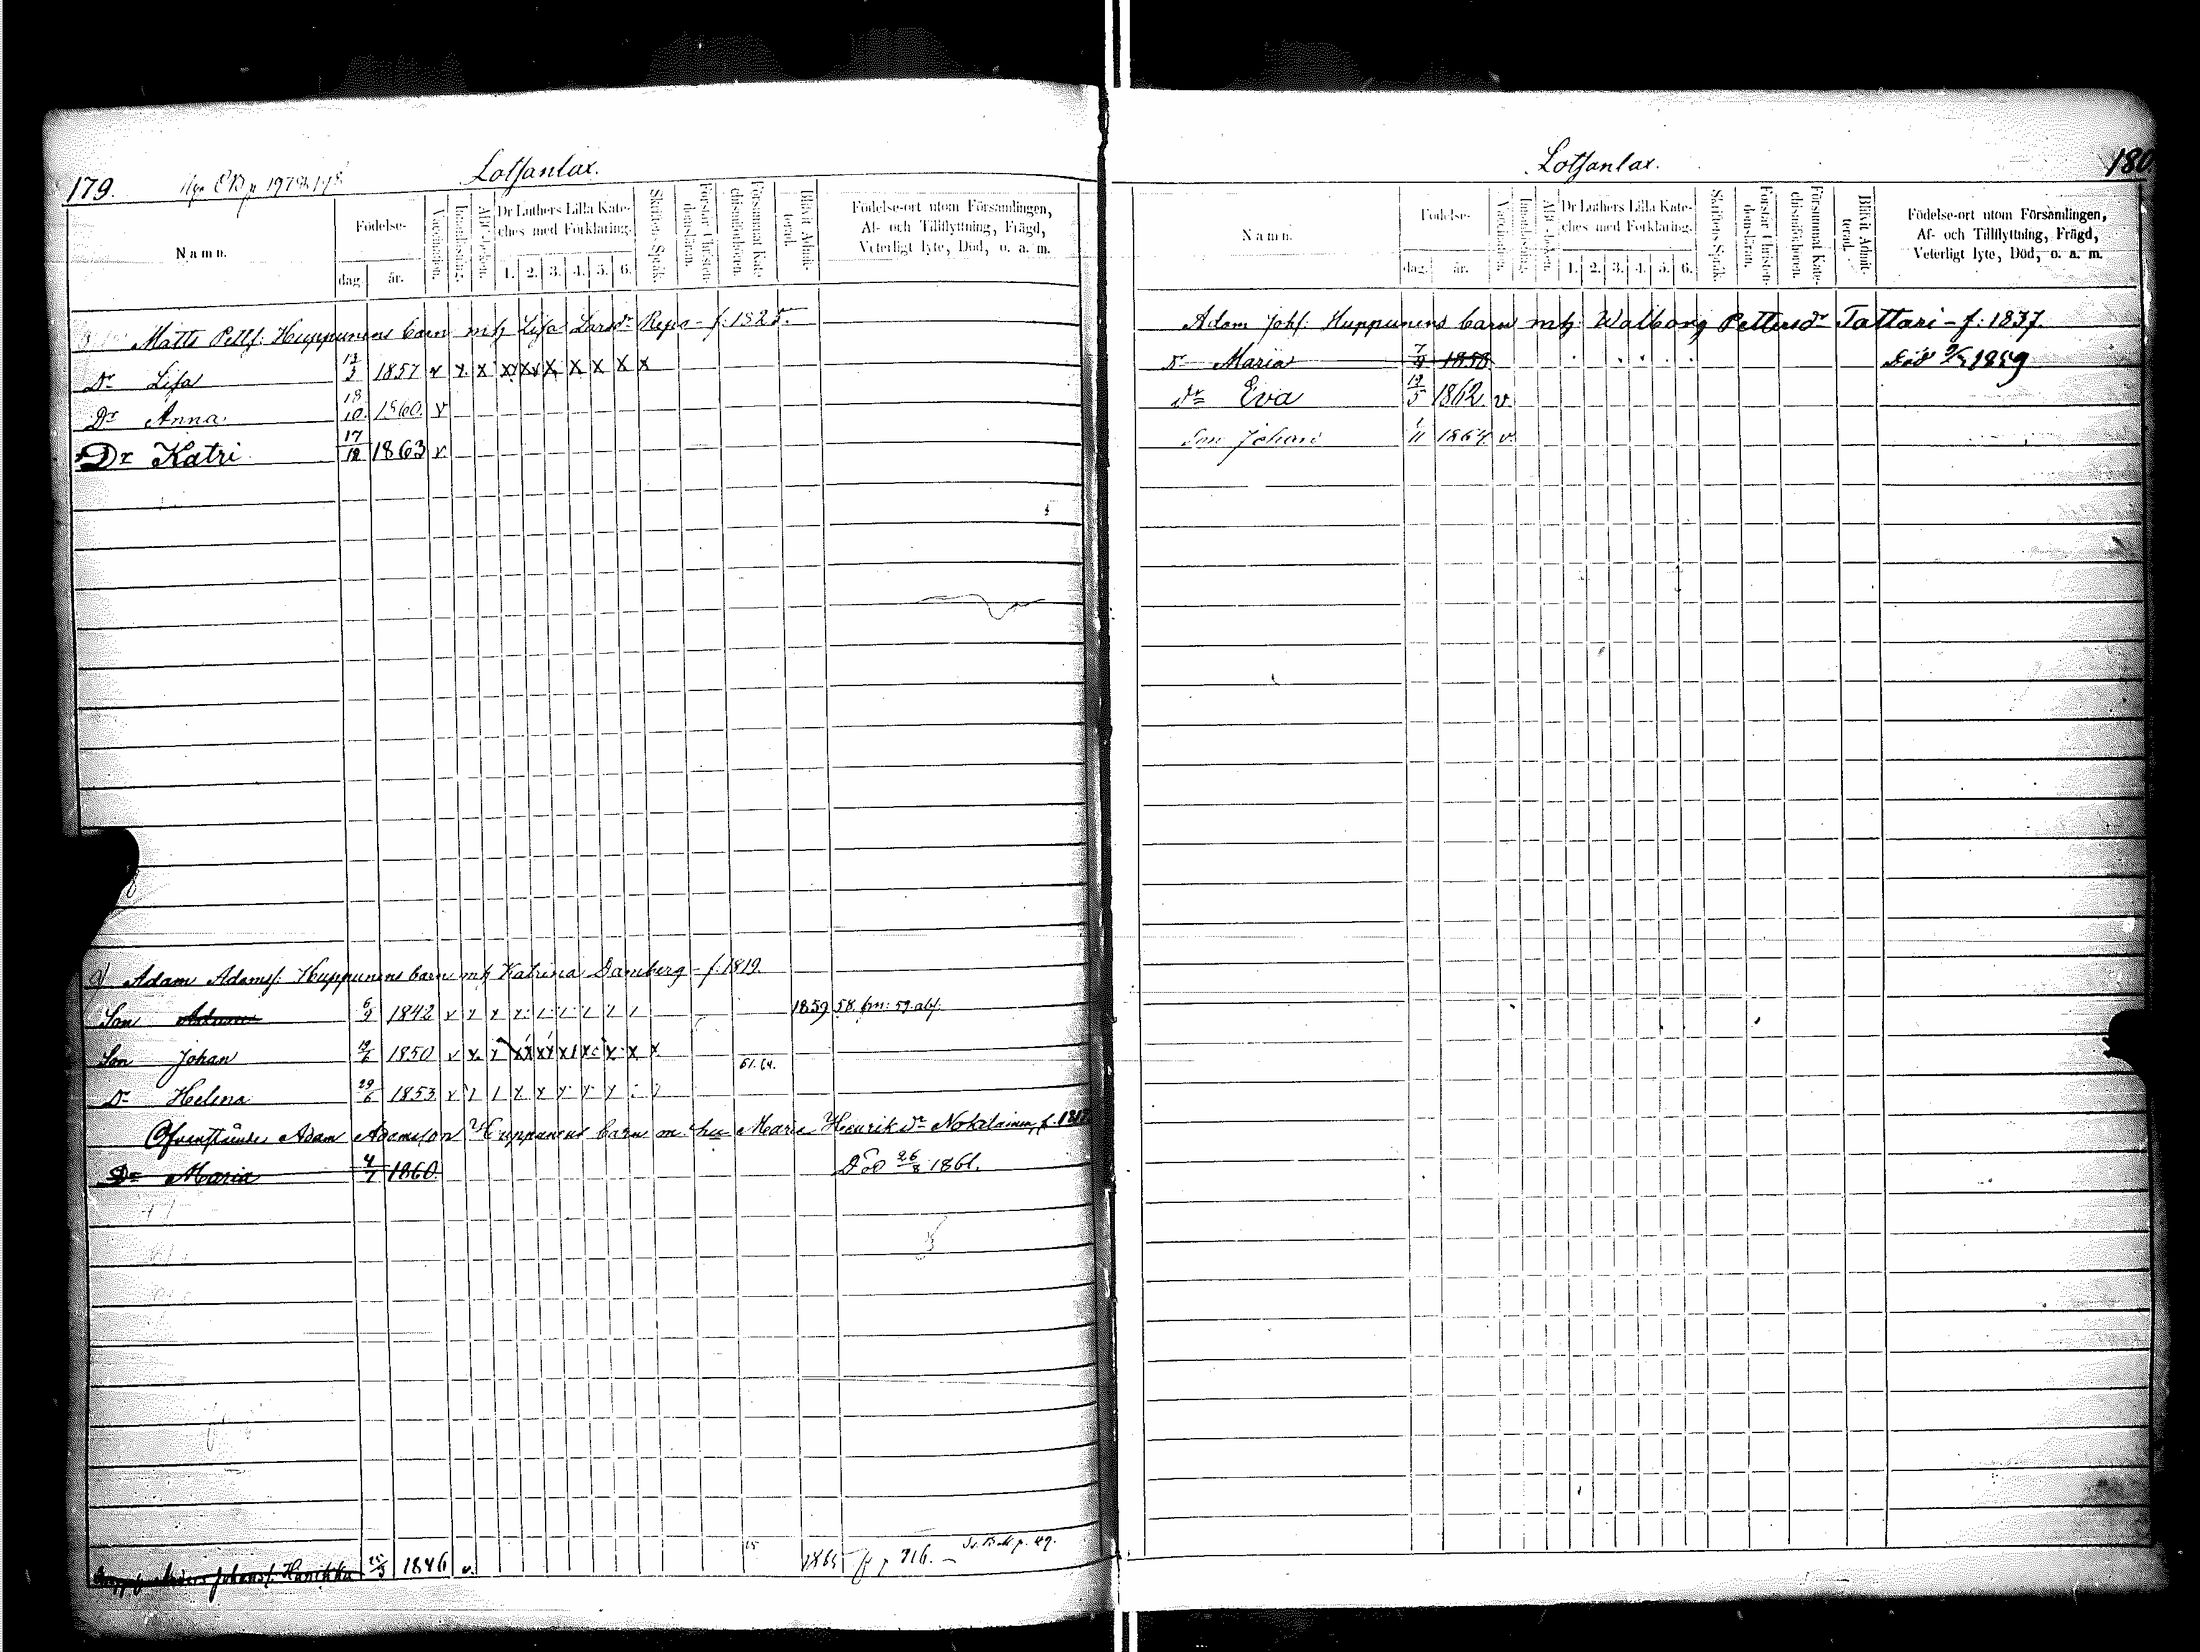 179.
Lotsanlax.
Namn.
Födelse-
dag.
år.
Vaccination.
Innanläsning.
Abc-boken.
Dr Luthers Lilla Kate-
ches med Förklaring.
1. 2. 3. 4. 5. 6.
Skriftens Språk.
Förstår Christen-
domsläran.
Försummat Kate-
chismiförhören.
Blifvit Admit-
terad.
Födelse-ort utom Församlingen,
Af- och Tillflyttning, Frägd,
Veterligt lyte, Död, o. a. m.
Matts Petts. Huppunens barn mh Lisa Larsdr Repo - f. 1825.
Dr Lisa 1857 v x x x x x x x x x
Dr Anna 18/10 1860 v
Dr Katri 17/12 1863 v
Adam Adams. Huppunens barn mh Katrina Damberg - f. 1819.
Son Adam 6/9 1842 v 1859 58. frn: 59. abs.
Son Johan 19/6 1850 v x 61. 64.
Dr Helena 29/6 1853 v
Ofvanstående Adam Adamson Huppunens barn m. hu Maria Henriksdr Nokelainen, f.
Dr Maria 4/7 1860. Död 26/8 1861.
Johans. Hanikka 25/3 1846 v. 1865 p 716. p. 49.
180.
Lotsanlax.
Namn.
Födelse-
dag.
år.
Vaccination.
Innanläsning.
Abc-boken.
Dr Luthers Lilla Kate-
ches med Förklaring.
1. 2. 3. 4. 5. 6.
Skriftens Språk.
Förstår Christen-
domsläran.
Försummat Kate-
chismiförhören.
Blifvit Admit-
terad.
Födelse-ort utom Församlingen,
Af- och Tillflyttning, Frägd,
Veterligt lyte, Död, o. a. m.
Adam Johs. Huppunens barn mh. Walborg Pettersdr Tattari - f: 1837
Dr Maria 1858 Död 1859
Dr Eva 12/5 1862 v.
Son Johan 1864 v